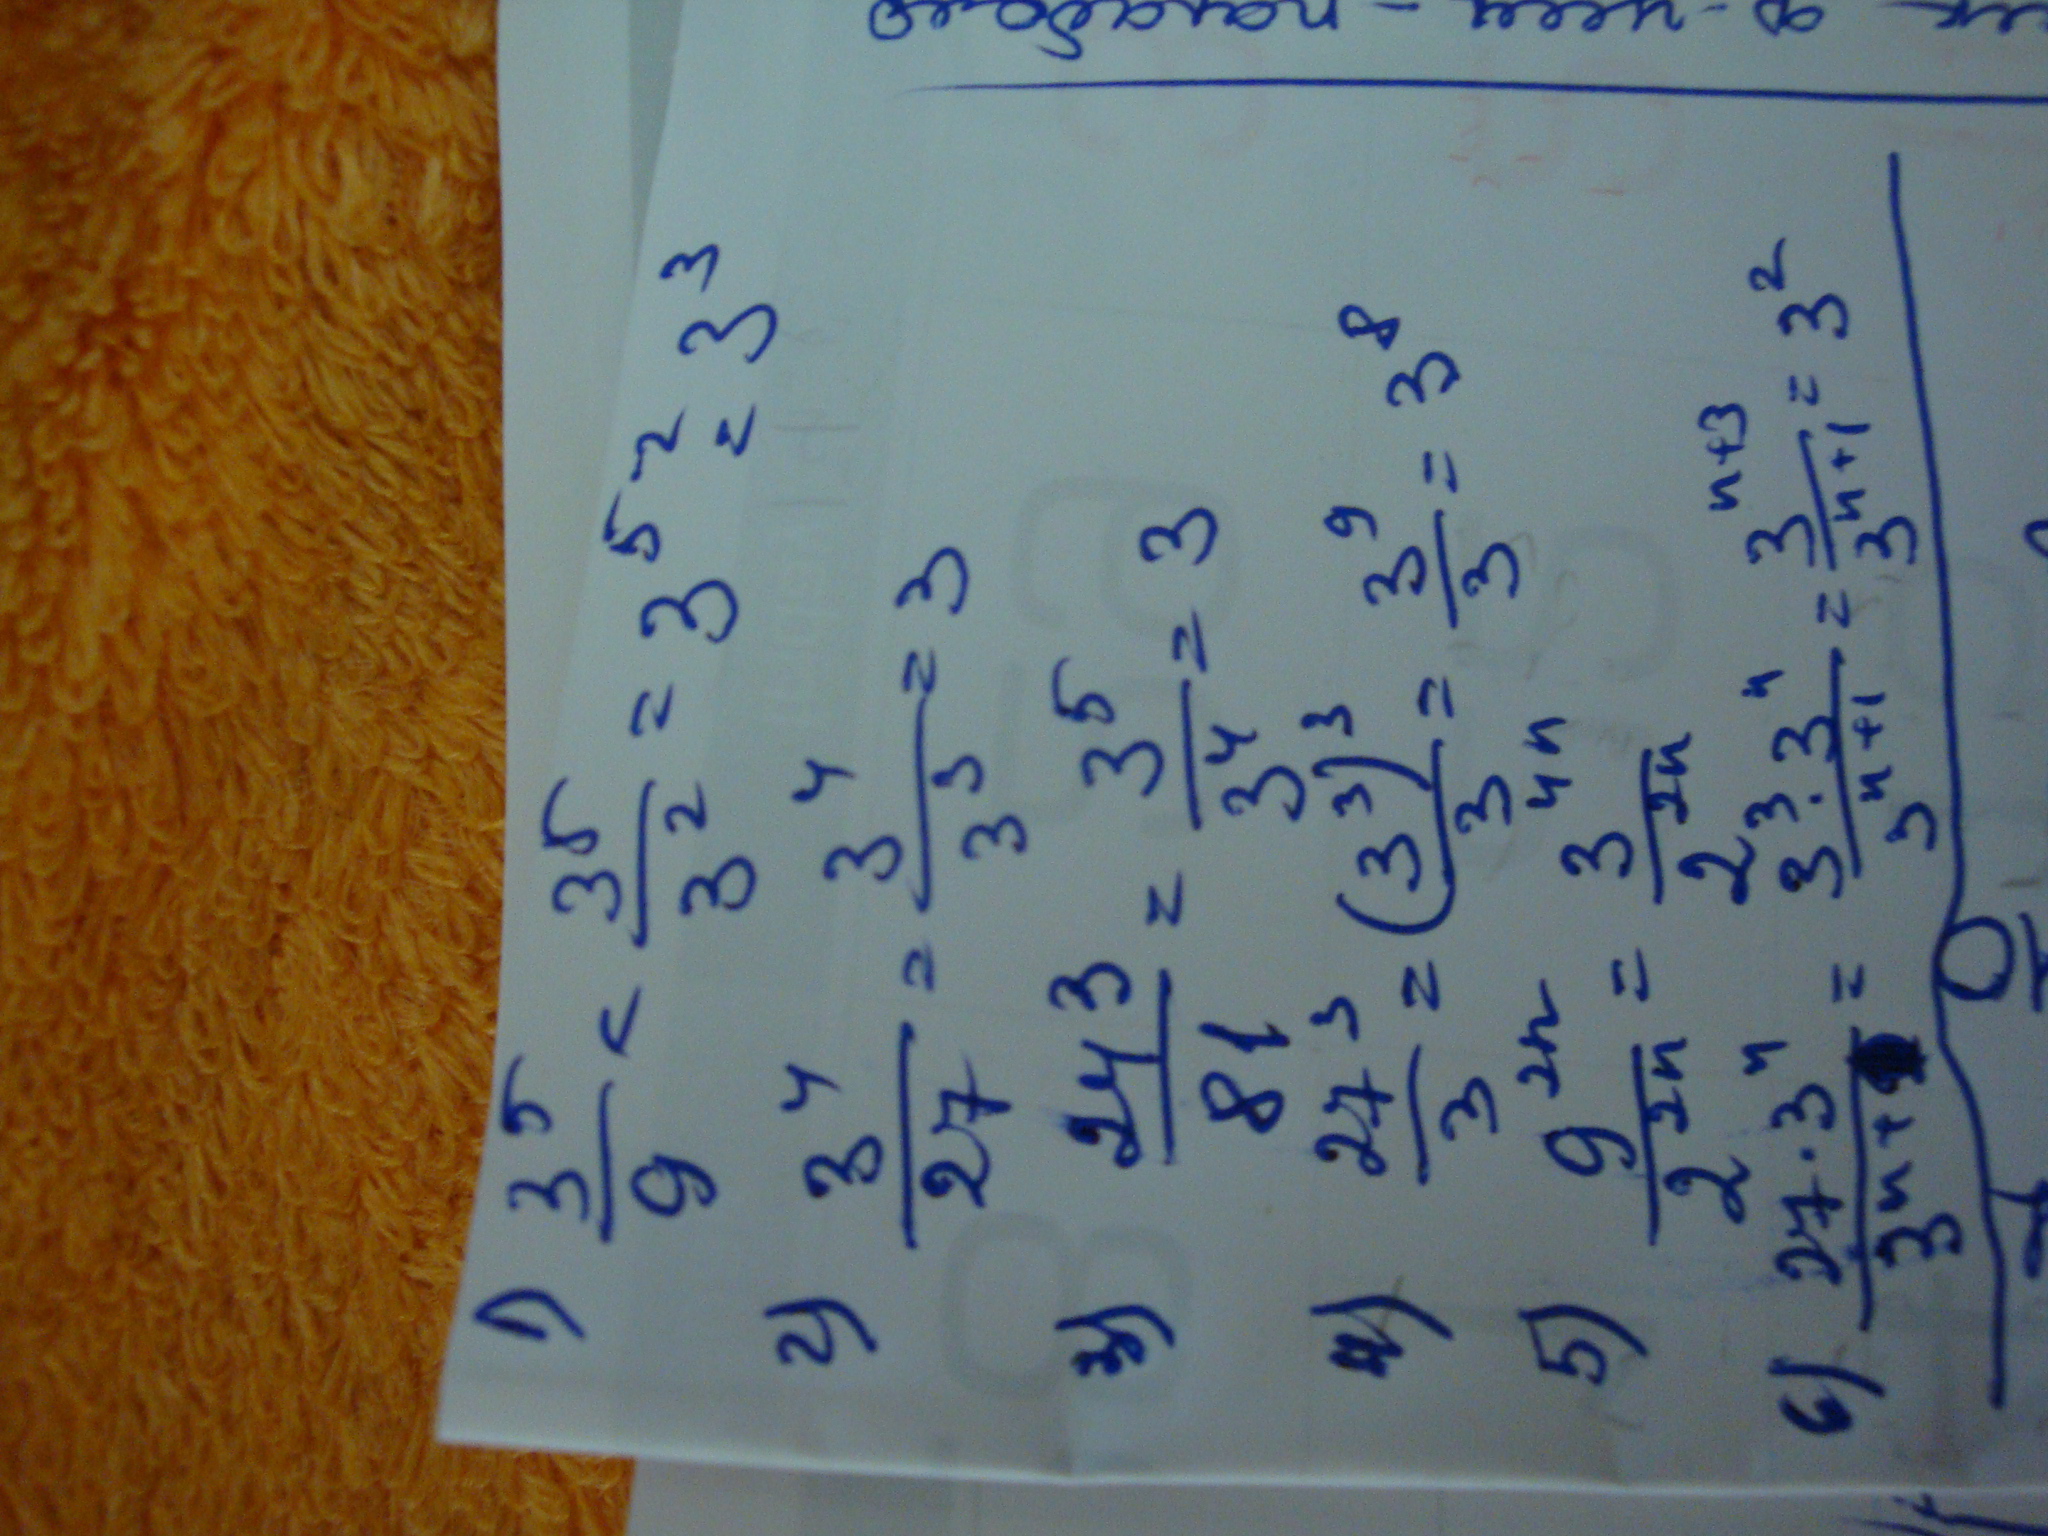 1) 3^5/9 = 3^5/3^2 = 3^5-2 = 3^3
2) 3^4/27 = 3^4/3^3 = 3
3) 243/81 = 3^5/3^4 = 3
4) 27^3/3 = (3^3)^3/3 = 3^9/3 = 3^8
5) 9^2n/2^2n = 3^4n/2^2n
6) 27·3^n/3^n+1 = 3^3·3^n/3^n+1 = 3^n+3/3^n+1 = 3^2